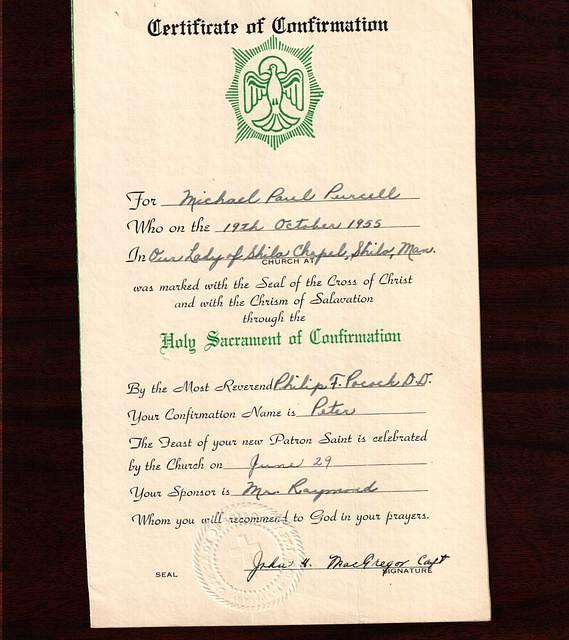 Certificate of Confirmation
For Michael Paul Purcell
Who on the 19th October 1955
In Our Lady of Shilo Chapel, Shilo, Man.
CHURCH AT
was marked with the Seal of the Cross of Christ
and with the Chrism of Salavation
through the
Holy Sacrament of Confirmation
By the Most Reverend Philip F. Pocock D.D.
Your Confirmation Name is Peter
The Feast of your new Patron Saint is celebrated
by the Church on June 29
Your Sponsor is Mr. Raymond
Whom you will recommend to God in your prayers.
John H. MacGregor Capt
SEAL
SIGNATURE